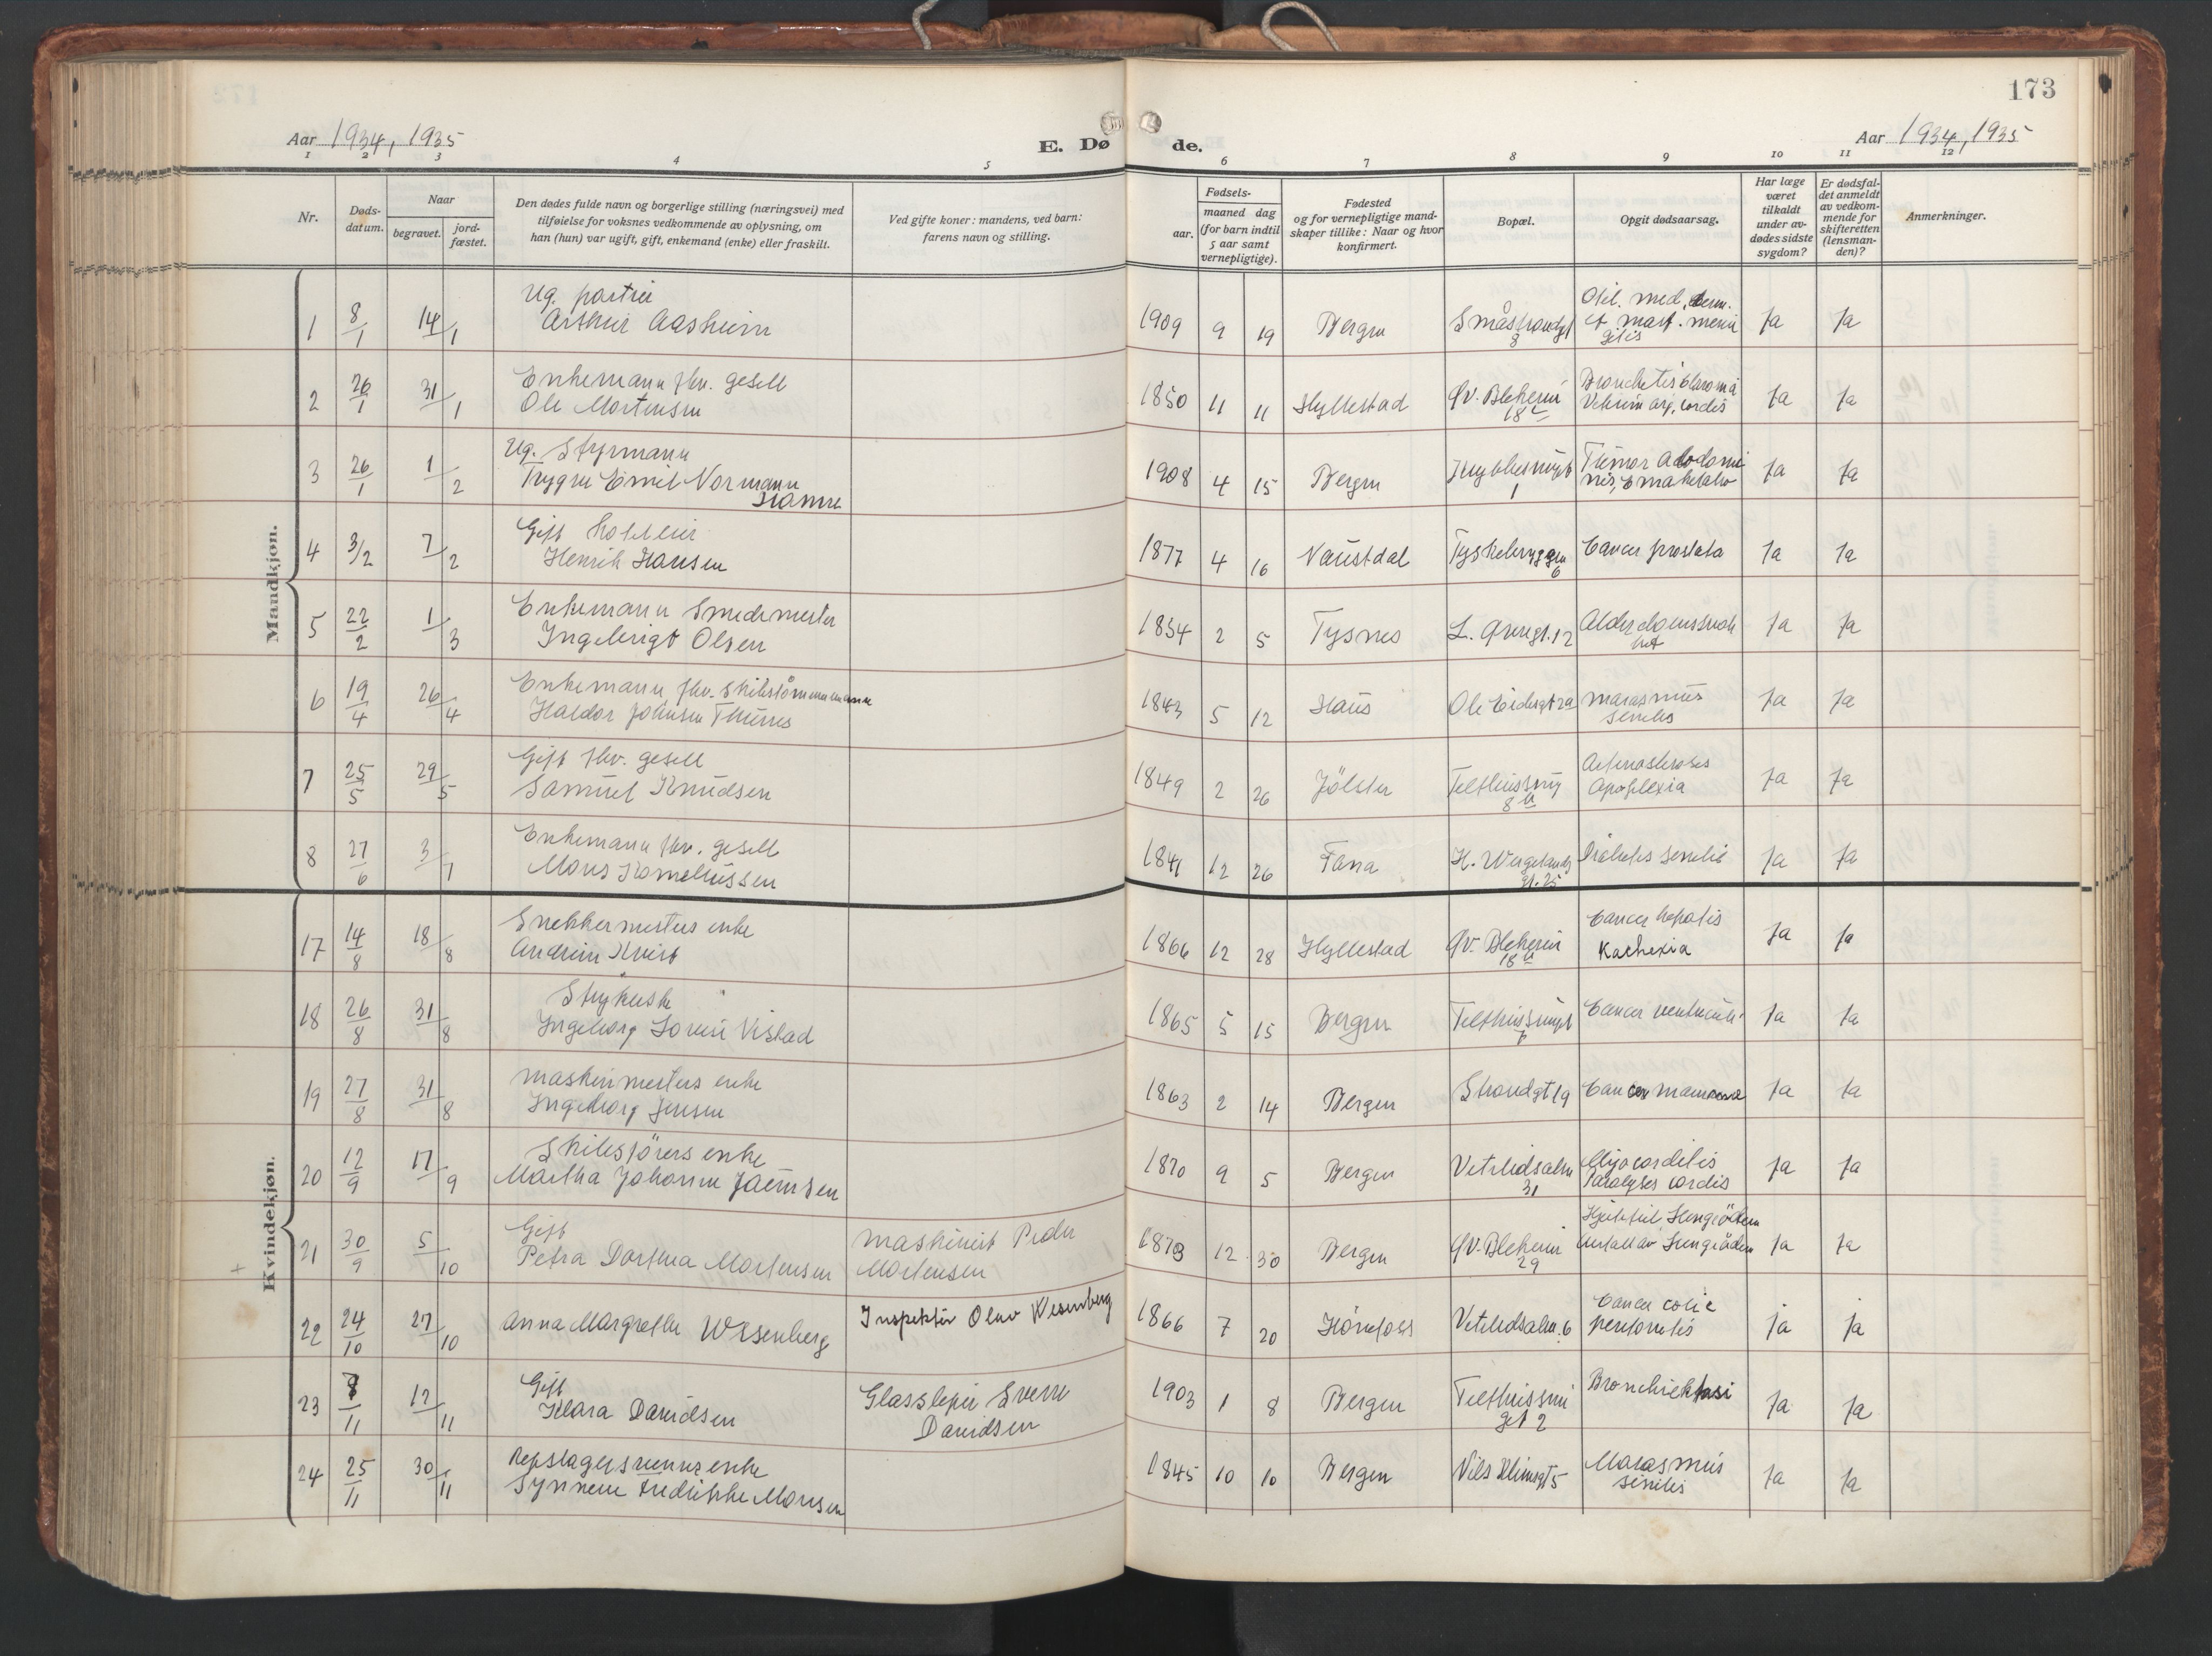 173
Aar 1934, 1935
E. Dø de.
Aar 1934, 1935
1 2 3 4 5 6 7 8 9 10 11 12
Nr.
Døds-
datum.
Naar
begravet.
jord-
fæstet.
Den dødes fulde navn og borgerlige stilling (næringsvei) med
tilføielse for voksnes vedkommende av oplysning, om
han (hun) var ugift, gift, enkemand (enke) eller fraskilt.
Ved gifte koner: mandens, ved barn:
farens navn og stilling.
Fødsels-
aar.
maaned dag
(for barn indtil
5 aar samt
vernepligtige).
Fødested
og for vernepligtige mand-
skaper tillike: Naar og hvor
konfirmert.
Bopæl.
Opgit dødsaarsag.
Har læge
været
tilkaldt
under av-
dødes sidste
sygdom?
Er dødsfal-
det anmeldt
av vedkom-
mende for
skifteretten
(lensman-
den)?
Anmerkninger.
Mandkjøn.
Ug. portier
1 8/1 14/1 Arthur Aasheim 1909 9 19 Bergen Småstrandgt 8 Ja Ja
Enkemann fhv. gesell
2 26/1 31/1 Ole Mortensen 1850 11 11 Hyllestad Øv. Blekevei 18 Ja Ja
Ug. Styrmann
3 26/1 1/2 Trygve Emil Normann
Hamre 1908 4 15 Bergen 1 Tumor Abdomi
nis, Ja Ja
Gift
4 3/2 7/2 Henrik Hansen 1877 4 16 Naustdal Tyskebryggen 6 Cancer prostata Ja Ja
Enkemann Smedmester
5 22/2 1/3 Ingebrigt Olsen 1854 2 5 Tysnes L. Øvregt. 12 Alderdomssvak
het Ja Ja
Enkemann fhv. skibstømmermann
6 19/4 26/4 Haldor Johnsen Thunes 1843 5 12 Haus Ole Eidesgt 2a Marasmus
senilis Ja Ja
Gift fhv. gesell
7 25/5 29/5 Samuel Knudsen 1849 2 26 Jölster Telthussmug 8 Apoplexia Ja Ja
Enkemann fhv. gesell
8 27/6 3/7 Mons Korneliussen 1841 12 26 Fana H. Wergelands
gt. 25 Diabetes senilis Ja Ja
Kvindekjøn.
Snekkermesters enke
17 14/8 18/8 1866 12 28 Hyllestad Øv. Blekevei 18 Cancer hepatis
Kachexia Ja Ja
Strykerske
18 26/8 31/8 Ingeborg Lovise Vistad 1865 5 15 Bergen Telthussmugt Cancer ventriculi Ja Ja
Maskinmesters enke
19 27/8 31/8 Ingeborg Jensen 1863 2 14 Bergen Strandgt 19 Cancer mamma Ja Ja
Skibsførers enke
20 12/9 17/9 Martha Johanne 1870 9 5 Bergen Vetrlidsalm 31 Myocarditis
Paralyses cordis Ja Ja
Gift
+ 21 30/9 5/10 Petra Dorthea Mortensen Maskinist Peder
Mortensen 1873 12 30 Bergen Øv. Blekevei 29 Hjertefeil, Lungeödem Ja Ja
22 24/10 27/10 Anna Margrethe Wesenberg Inspektör Olav Wesenberg 1866 7 20 Hönefoss Vetrlidsalm. 6 Cancer colie
peritonitis ja ja
Gift
23 8/11 12/11 Klara Davidsen Glassliper Sverre
Davidsen 1903 1 8 Bergen Telthussmu
get 2 Bronchiektasi Ja Ja
Repslagersvenns enke
24 25/11 30/11 Synneve Fredrikke Monsen 1845 10 10 Bergen Nils Klimsgt 5 Marasmus
senilis Ja Ja